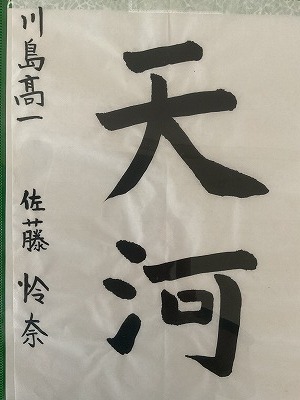 天河
川島高一 佐藤怜奈